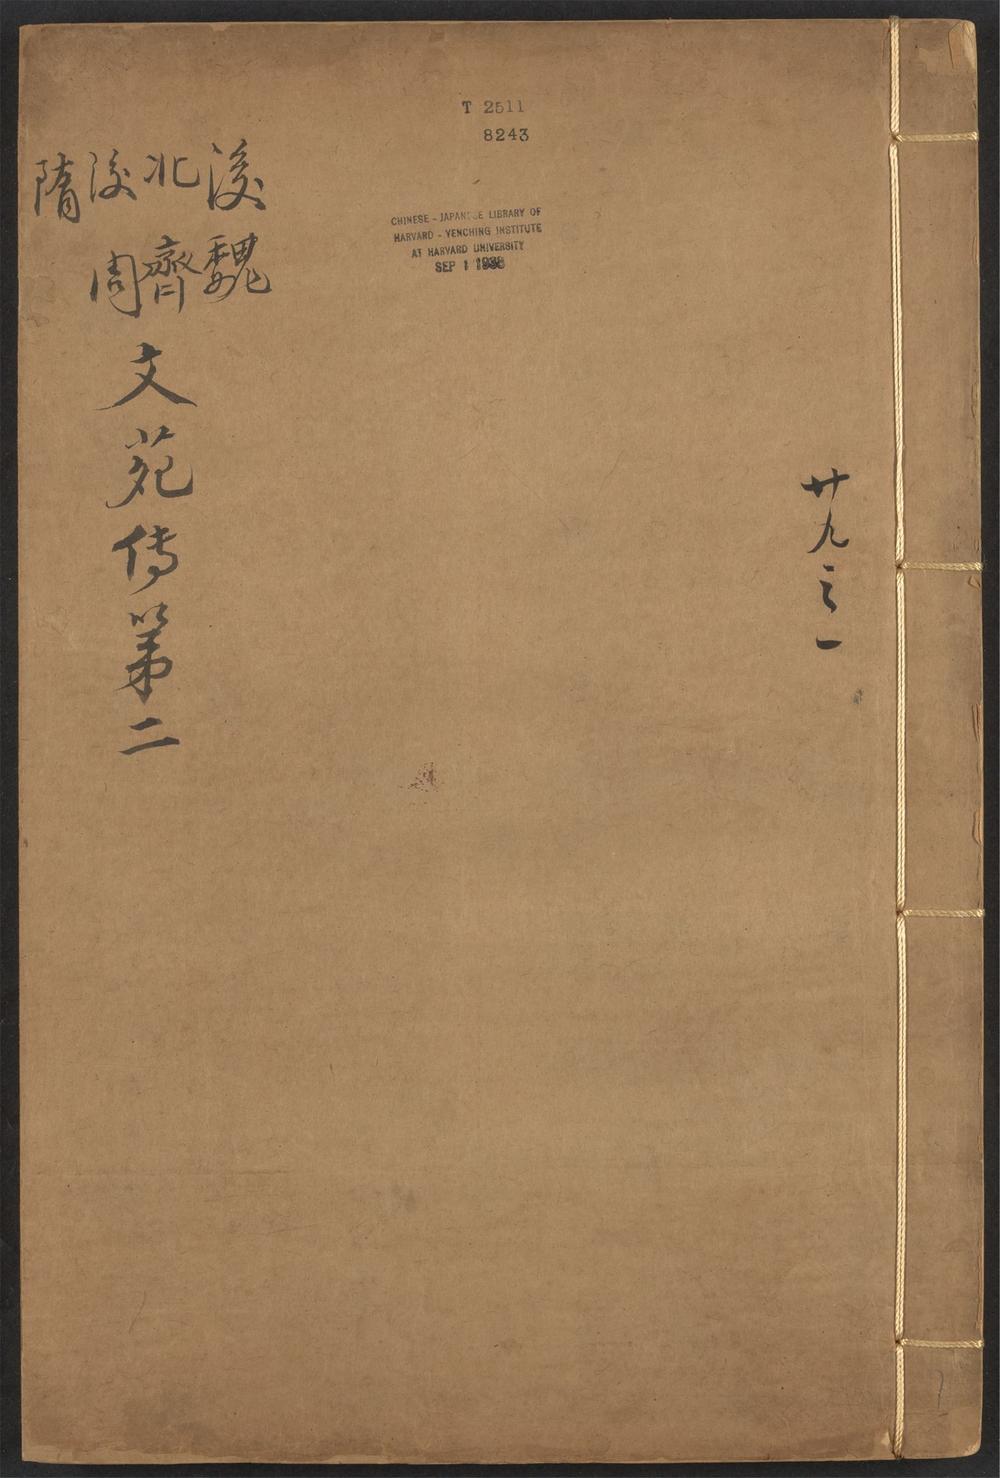 T 2511
8243
CHINESE - JAPANESE LIBRARY OF
HARVARD - YENCHING INSTITUTE
AT HARVARD UNIVERSITY
SEP 1 1938
廿九之一
後魏
北齊
後周
隋
文苑傳第二